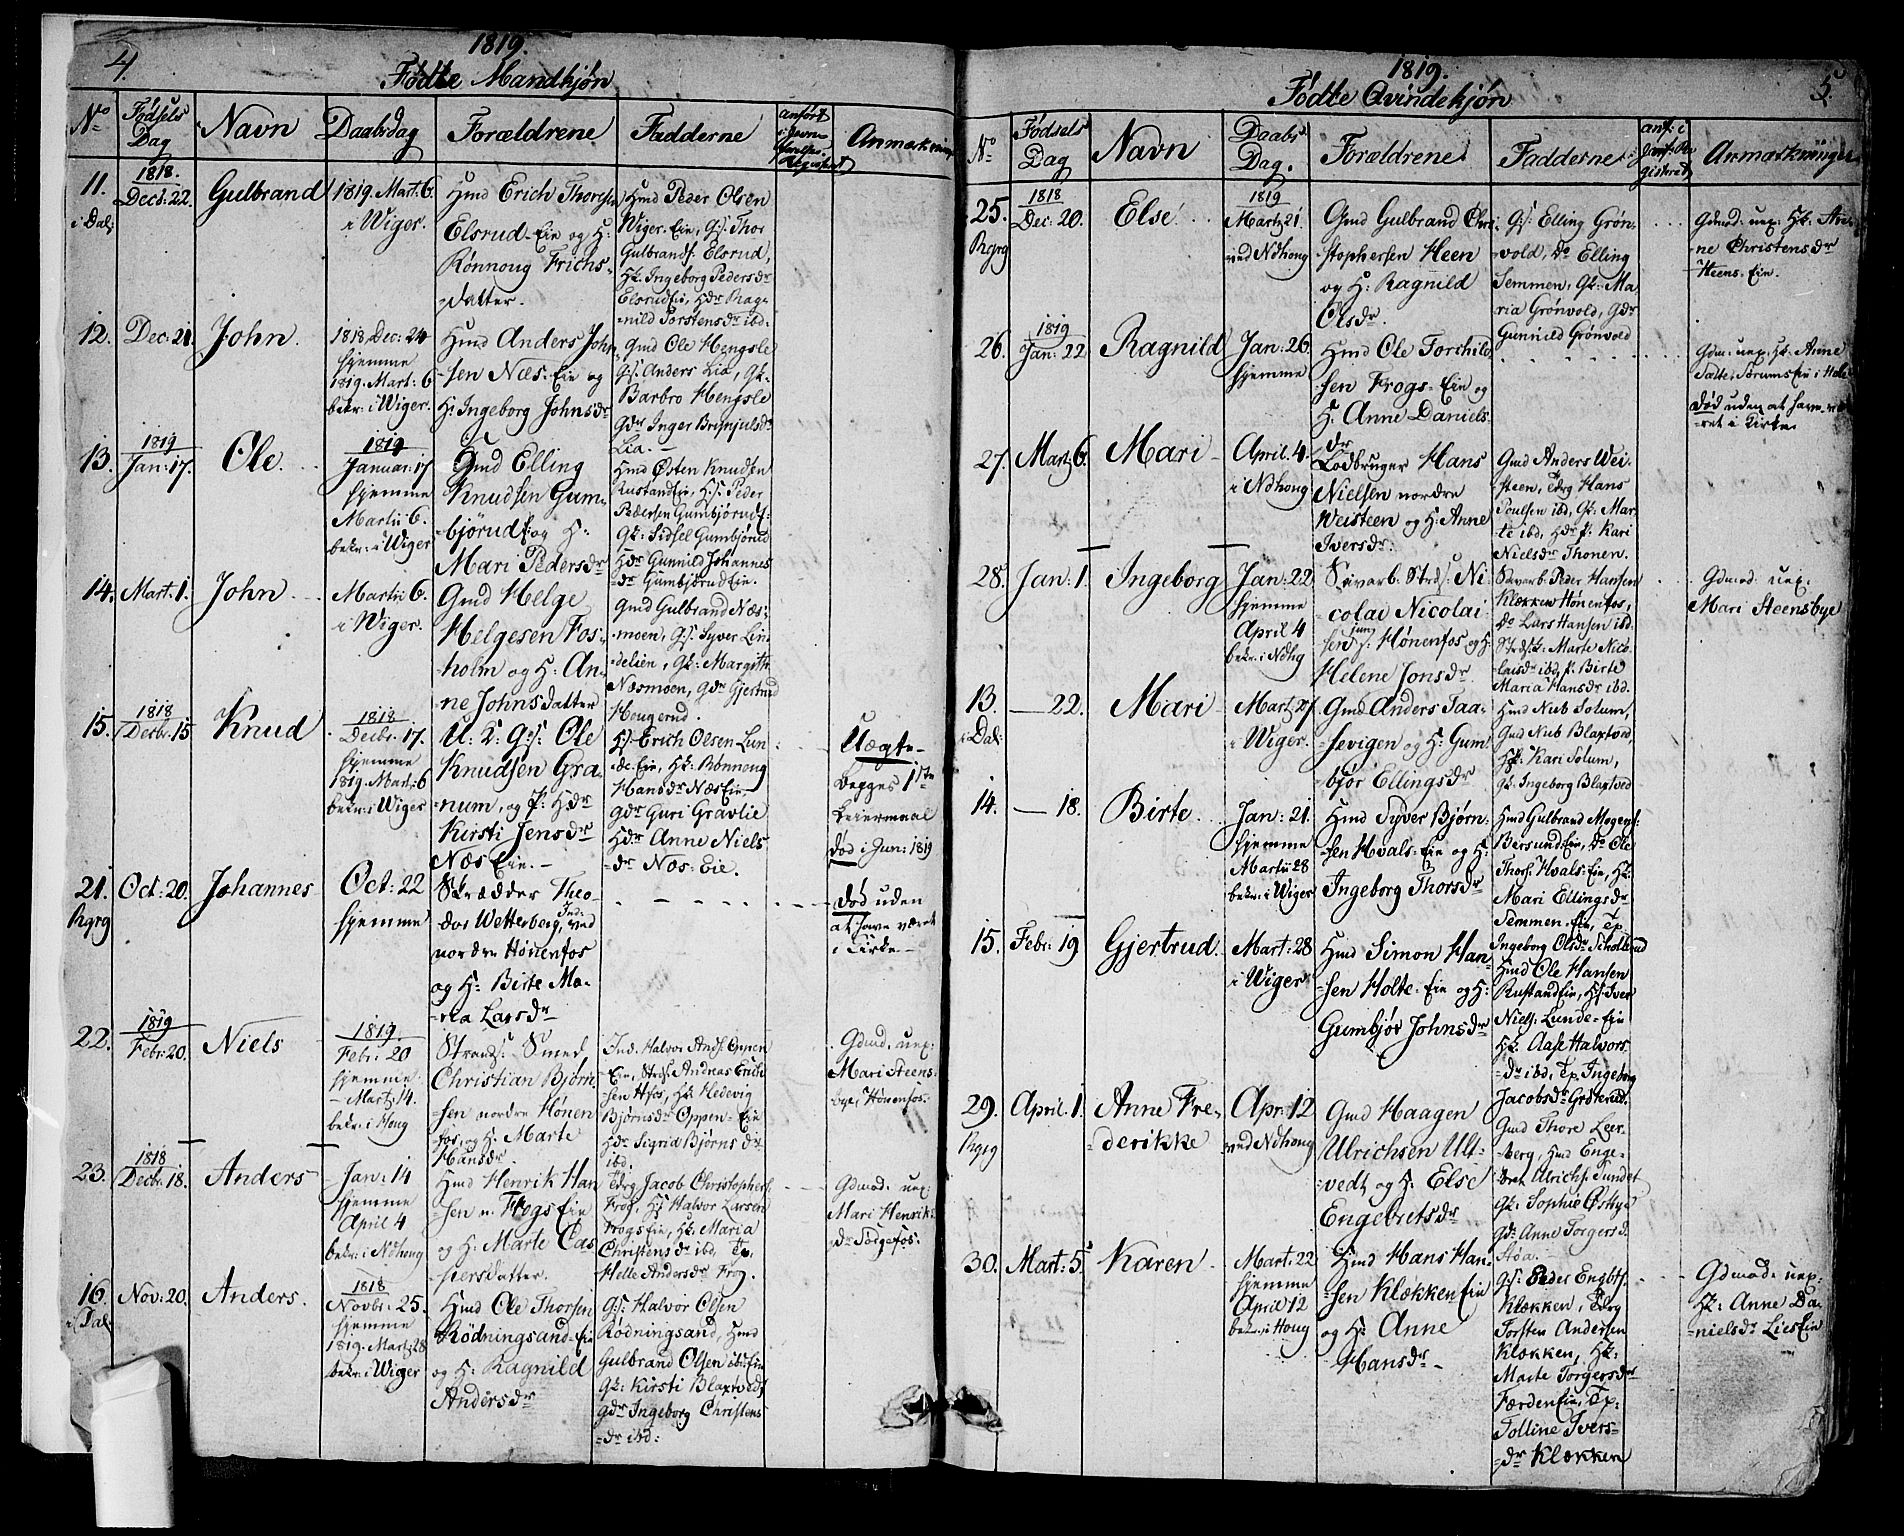 4.
1819.
Fødte Mandkjøn
No
Fødsels
Dag
Navn
Daabsdag
Forældrene
Fadderne
anført
Anmærkninger
11.
i Dal:
1818.
Decb: 22.
Gulbrand
1819. Mart. 6.
i Wiger.
Hmd Erich Thorsen
Elsrud-Eie og H:
Rønnoug Frichs-
-datter.
Hmd Peder Olsen
Wiger-Eie, G:s: Thor
Gulbrands: Elsrud,
Hk: Ingeborg Pedersdr
ElsrudEie, Hdr Rag-
-nild Torstensdr ibd:
12.
Dec: 21.
John.
1818, Dec: 24
hjemme
1819. Mart: 6
bekr: i Wiger.
Hmd Anders John-
-sen Næs-Eie og
H: Ingeborg Johnsdr
Gmd Ole Hengsle
G:s: Anders Lia, Gk:
Barbro Hengsle
Gdr Inger
Lia. -
13.
1819
Jan: 17.
Ole.
1819
Januar: 17
hjemme
Martii 6.
bekr: i Wiger
Gmd Elling
Knudsen Gum-
-bjørud og H:
Mari Pedersdr
Hmd Østen Knudsen
RustandEie, H:s: Peder
Pedersen Gumbjørud
Gk: Sidsel Gumbjørud
Hdr Gunnild Johannes
dr GumbjørudEie.
14.
Mart: 1.
John
Martii 6.
i Wiger.
Gmd Helge
Helgesen Fos-
-holm og H: An-
-ne Johnsdatter
Gmd Gulbrand Næs-
-moen, G:s: Syver Lin-
-delien, Gk: Margith
Næsmoen, Gdr Gjertrud
Hougerud.
15.
1818
Decbr. 15
Knud
1818
Decbr. 17.
hjemme
1819. Mart: 6
bekr: i Wiger
U: 2: G:s: Ole
Knudsen Gra-
-num, og P: Hdr
Kirsti Jensdr
NæsEie. -
H:s: Erich Olsen Lun-
-de-Eie, Hk: Rønnoug
Hansdr NæsEie.
Gdr Guri Gravlie
Hdr Anne Niels
-dr Næs-Eie.
Uægte-
Begges 1ste
Leiermaal
død i Jun: 1819
21.
Rgrg
Oct: 20.
Johannes
Oct: 22
hjemme
Skrædder Theo-
dor Wetterberg, Ind: ved
nordre Hønenfos
og H: Birte Ma-
-ria Larsdr
død uden
at have været
i Kirke-
22.
1819
Febr: 20.
Niels
1819.
Febr: 20
hjemme
Martz: 14.
bekr: i Houg
Strands: Smed
Christian Bjørn-
-sen nordre Hønen
fos, og H: Marte
Hansdr
Ind. Halvor Ands: Oppen
Eie, Strds: Andreas Erich
sen Hfos, Hk: Hedevig
Bjørnsdr Oppen-Eie
Hdr Sigrid Bjørns dr
ibd.
Gdmod. uex:
Mari Steens-
bye, Hønenfos.
23.
1818
Decbr. 18.
Anders
Jan: 14
hjemme
April 4
bekr: i Ndhoug
Hmd Henrik Han
-sen n. FrogsEie
og H: Marte Cas-
-persdatter.
Tdrg Jacob Christophers:
Frog, H:s: Halvor Larsen
FrogsEie, Hk: Maria
Christensdr ibd, Tp:
Helle Andersdr Frog.
Gdmod. uex:
Mari Henriks
-dr Sørgefos:
16.
i Dal
Nov: 20.
Anders.
1818
Novbr: 25.
hjemme
1819. Mart: 28
bekr: i Wiger
Hmd Ole Thorsen
Rødningsand-Eie
og H: Ragnild
Andersdr
G:s: Halvor Olsen
Rødningsand, Hmd
Gulbrand Olsen ibd:Eie
Gk: Kirsti Blaxtved,
Gdr Ingeborg Christens-
-dr ibd:
1819.
5.
Fødte Qvindekjøn
No
Fødsels
Dag
Navn
Daabs
Dag.
Forældrene
Fadderne
anf: i
Anmærkninger
25.
Rgrg
1818
Dec: 20.
Else
1819
Martz 21
ved Ndhoug
Gmd Gulbrand Chri-
-stophersen Heen
og H: Ragnild
Olsdr.
G:s: Elling Grøn-
-vold, Do Elling
Semmen, Gk: Ma
ria Grønvold, Gdr
Gunnild Grønvold
Gdmod. uex: Hk: An-
-ne Christensdr
Heens-Eie.
26.
1819
Jan: 22
Ragnild
Jan: 26
hjemme
Hmd Ole Torchild-
sen Frogs-Eie og
H: Anne Daniels-
dr
Gdm: uex: Hk: Anne
død uden at have væ-
-ret i Kirke.
27.
Mart: 6.
Mari
April. 4.
i Ndhoug
Lodbruger Hans
Nielsen nordre
Weisteen og H: Anne
Iversdr.
Gmd Anders Wei-
steen, Tdrg Hans
Poulsen ibd, Gk: Mar-
te ibd, Hdr P: Kari
Nielsdr Thonen.
28.
Jan: 1.
Ingeborg
Jan: 22
hjemme
April 4
bekr: i Ndhg
Savarb: Strds: Ni
colai Nicolai
sen jun: s: Hønenfos og H:
Helene Jonsdr
Savarb: Peder Hansen
Klækken Hønenfos,
Do Lars Hansen ibd.
Strdsk: Marte Nico-
laisdr ibd, P. Birte
Maria Hansdr ibd.
Gdmod. uex:
Mari Steensbye
13.
i Dal:
-22.
Mari
Mart: 27
i Wiger.
Gmd Anders Taa-
-sevigen og H: Gum-
bjør Ellingsdr
Hmd Nub Solum,
Gmd Nub Blaxtved,
Hk: Kari Solum,
Gk: Ingeborg Blaxtved
14.
-18.
Birte
Jan: 21.
hjemme
Martii 28
bekr: i Wiger
Hmd Syver Bjørn-
-sen Hvals-Eie og H:
Ingeborg Thorsdr
Hmd Gulbrand Mogens:
BørsundEie, Do Ole
Thors: Hvals-Eie, Hk:
Mari Ellingsdr
Semmen-Eie, Tp.
Ingeborg Olsdr
15.
Febr: 19
Gjertrud
Mart: 28
i Wiger
Hmd Simon Han-
-sen Holte-Eie og H:
Gumbjør Johnsdr
Hmd Ole Hansen
RustandEie, H:s: Iver
Niels: Lunde-Eie
Hk: Aase Halvors-
-dr ibd, Tp. Ingeborg
Jacobsdr Grøterud.
29.
Rgrg
April. 1.
Anne Fre-
derikke
Apr: 12
ved Ndhoug
Gmd Haagen
Ulrichsen Ult-
vedt og H: Else
Engebretsdr
Gmd Thore Leer-
-berg, Hmd Enge-
-bret Ulrichs: Sundet
Gk: Sophie Østbye
Gdr Anne Torgersdr
Støa.
30.
Mart: 5.
Karen
Mart: 22
hjemme
April 12
bekr: i Houg
Hmd Hans Han-
-sen KlækkenEie
og H: Anne
Hansdr-
G:s: Peder Engbts:
Klækken, Tdrg
Torsten Andersen
Klækken, Hk:
Marte Torgersdr
FærdenEie, Tp:
Tolline Ivers-
-dr Klækken
Gdmod: uex:
Hk: Anne Da-
-nielsdr LiesEie